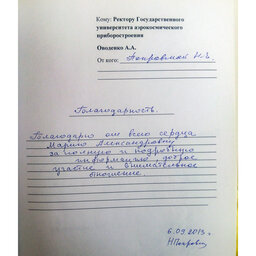 Кому: Ректору Государственного
университета аэрокосмического
приборостроения
Оводенко А.А.
От кого:
Благодарность.
Благодарю от всего сердца
Марину Александровну
за полную и подробную
информацию, доброе
участие и внимательное
отношение.
6.09.2013г.